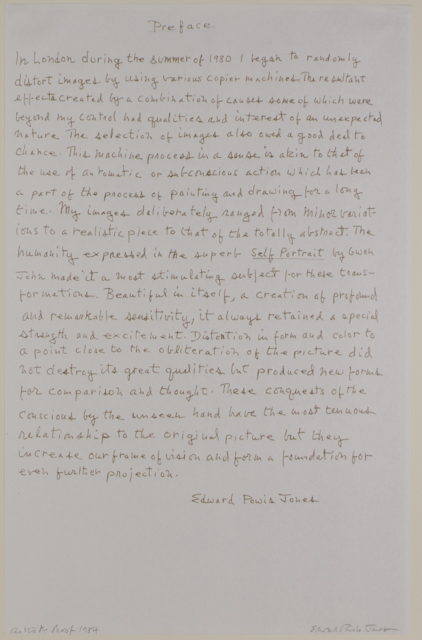 Preface
In London during the summer of 1980 I began to randomly
distort images by using various copier machines. The resultant
effects created by a combination of causes some of which were
beyond my control had qualities and interest of an unexpected
nature. The selection of images also owed a good deal to
chance. This machine process in a sense is akin to that of
the use of automatic or subconscious action which has been
a part of the process of painting and drawing for a long
time. My images deliberately ranged from minor variat-
ions to a realistic piece to that of the totally abstract. The
humanity expressed in the superb Self Portrait by Gwen
John made it a most stimulating subject for these trans-
formations. Beautiful in itself, a creation of profound
and remarkable sensitivity, it always retained a special
strength and excitement. Distortion in form and color to
a point close to the obliteration of the picture did
not destroy its great qualities but produced new forms
for comparison and thought. These conquests of the
conscious by the unseen hand have the most tenuous
relationship to the original picture but they
increase our frame of vision and form a foundation for
even further projection.
Edward Powis Jones
Artist's Proof 1984
Edward Powis Jones